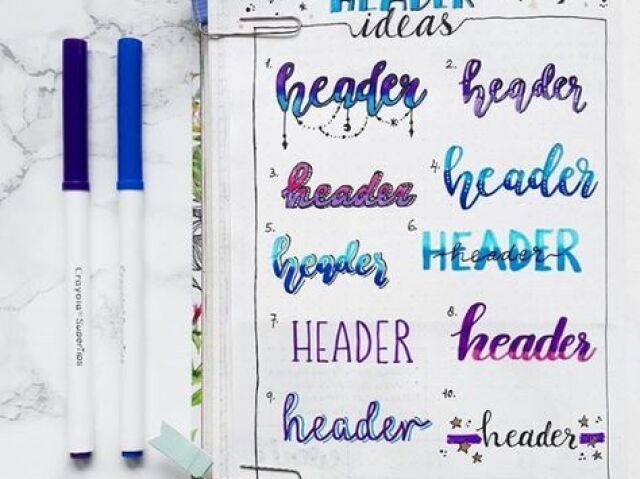 HEADER
ideas
1. header
2. header
3. header
4. header
5. header
6. HEADER
header
7. HEADER
8. header
9. header
10. header
Crayola SuperTips